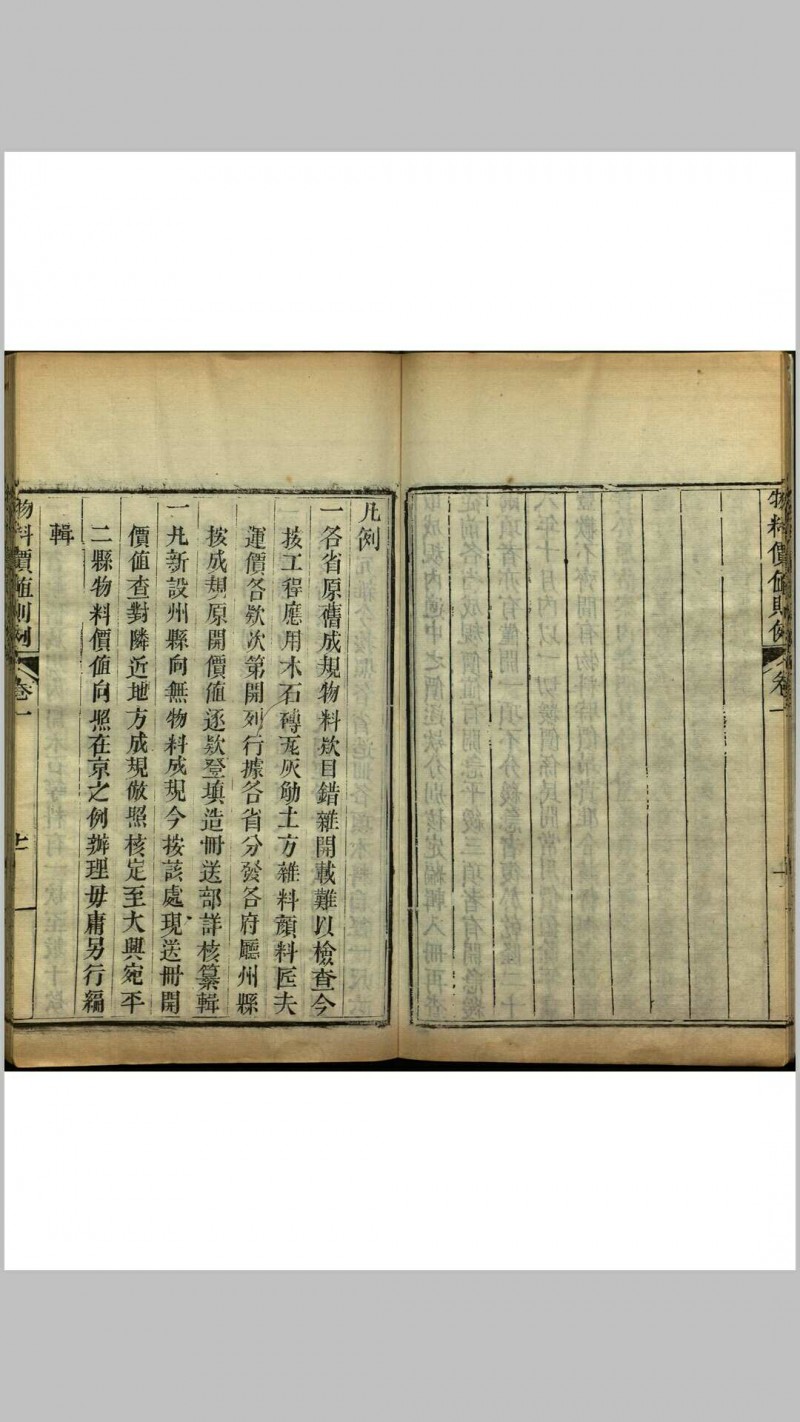 物料價值則例
卷一
凡例
一各省原舊成規物料欵目錯雜開載難以檢查今
按工程應用木石磚瓦灰觔土方雜料顔料匠夫
運價各欵次第開列行據各省分發各府廳州縣
按成規原開價值逐欵登填造冊送部詳核纂輯
一凡新設州縣向無物料成規今按該處現送冊開
價值查對隣近地方成規倣照核定至大興宛平
二縣物料價值向照在京之例辦理毋庸另行編
輯
物料價值則例
卷一